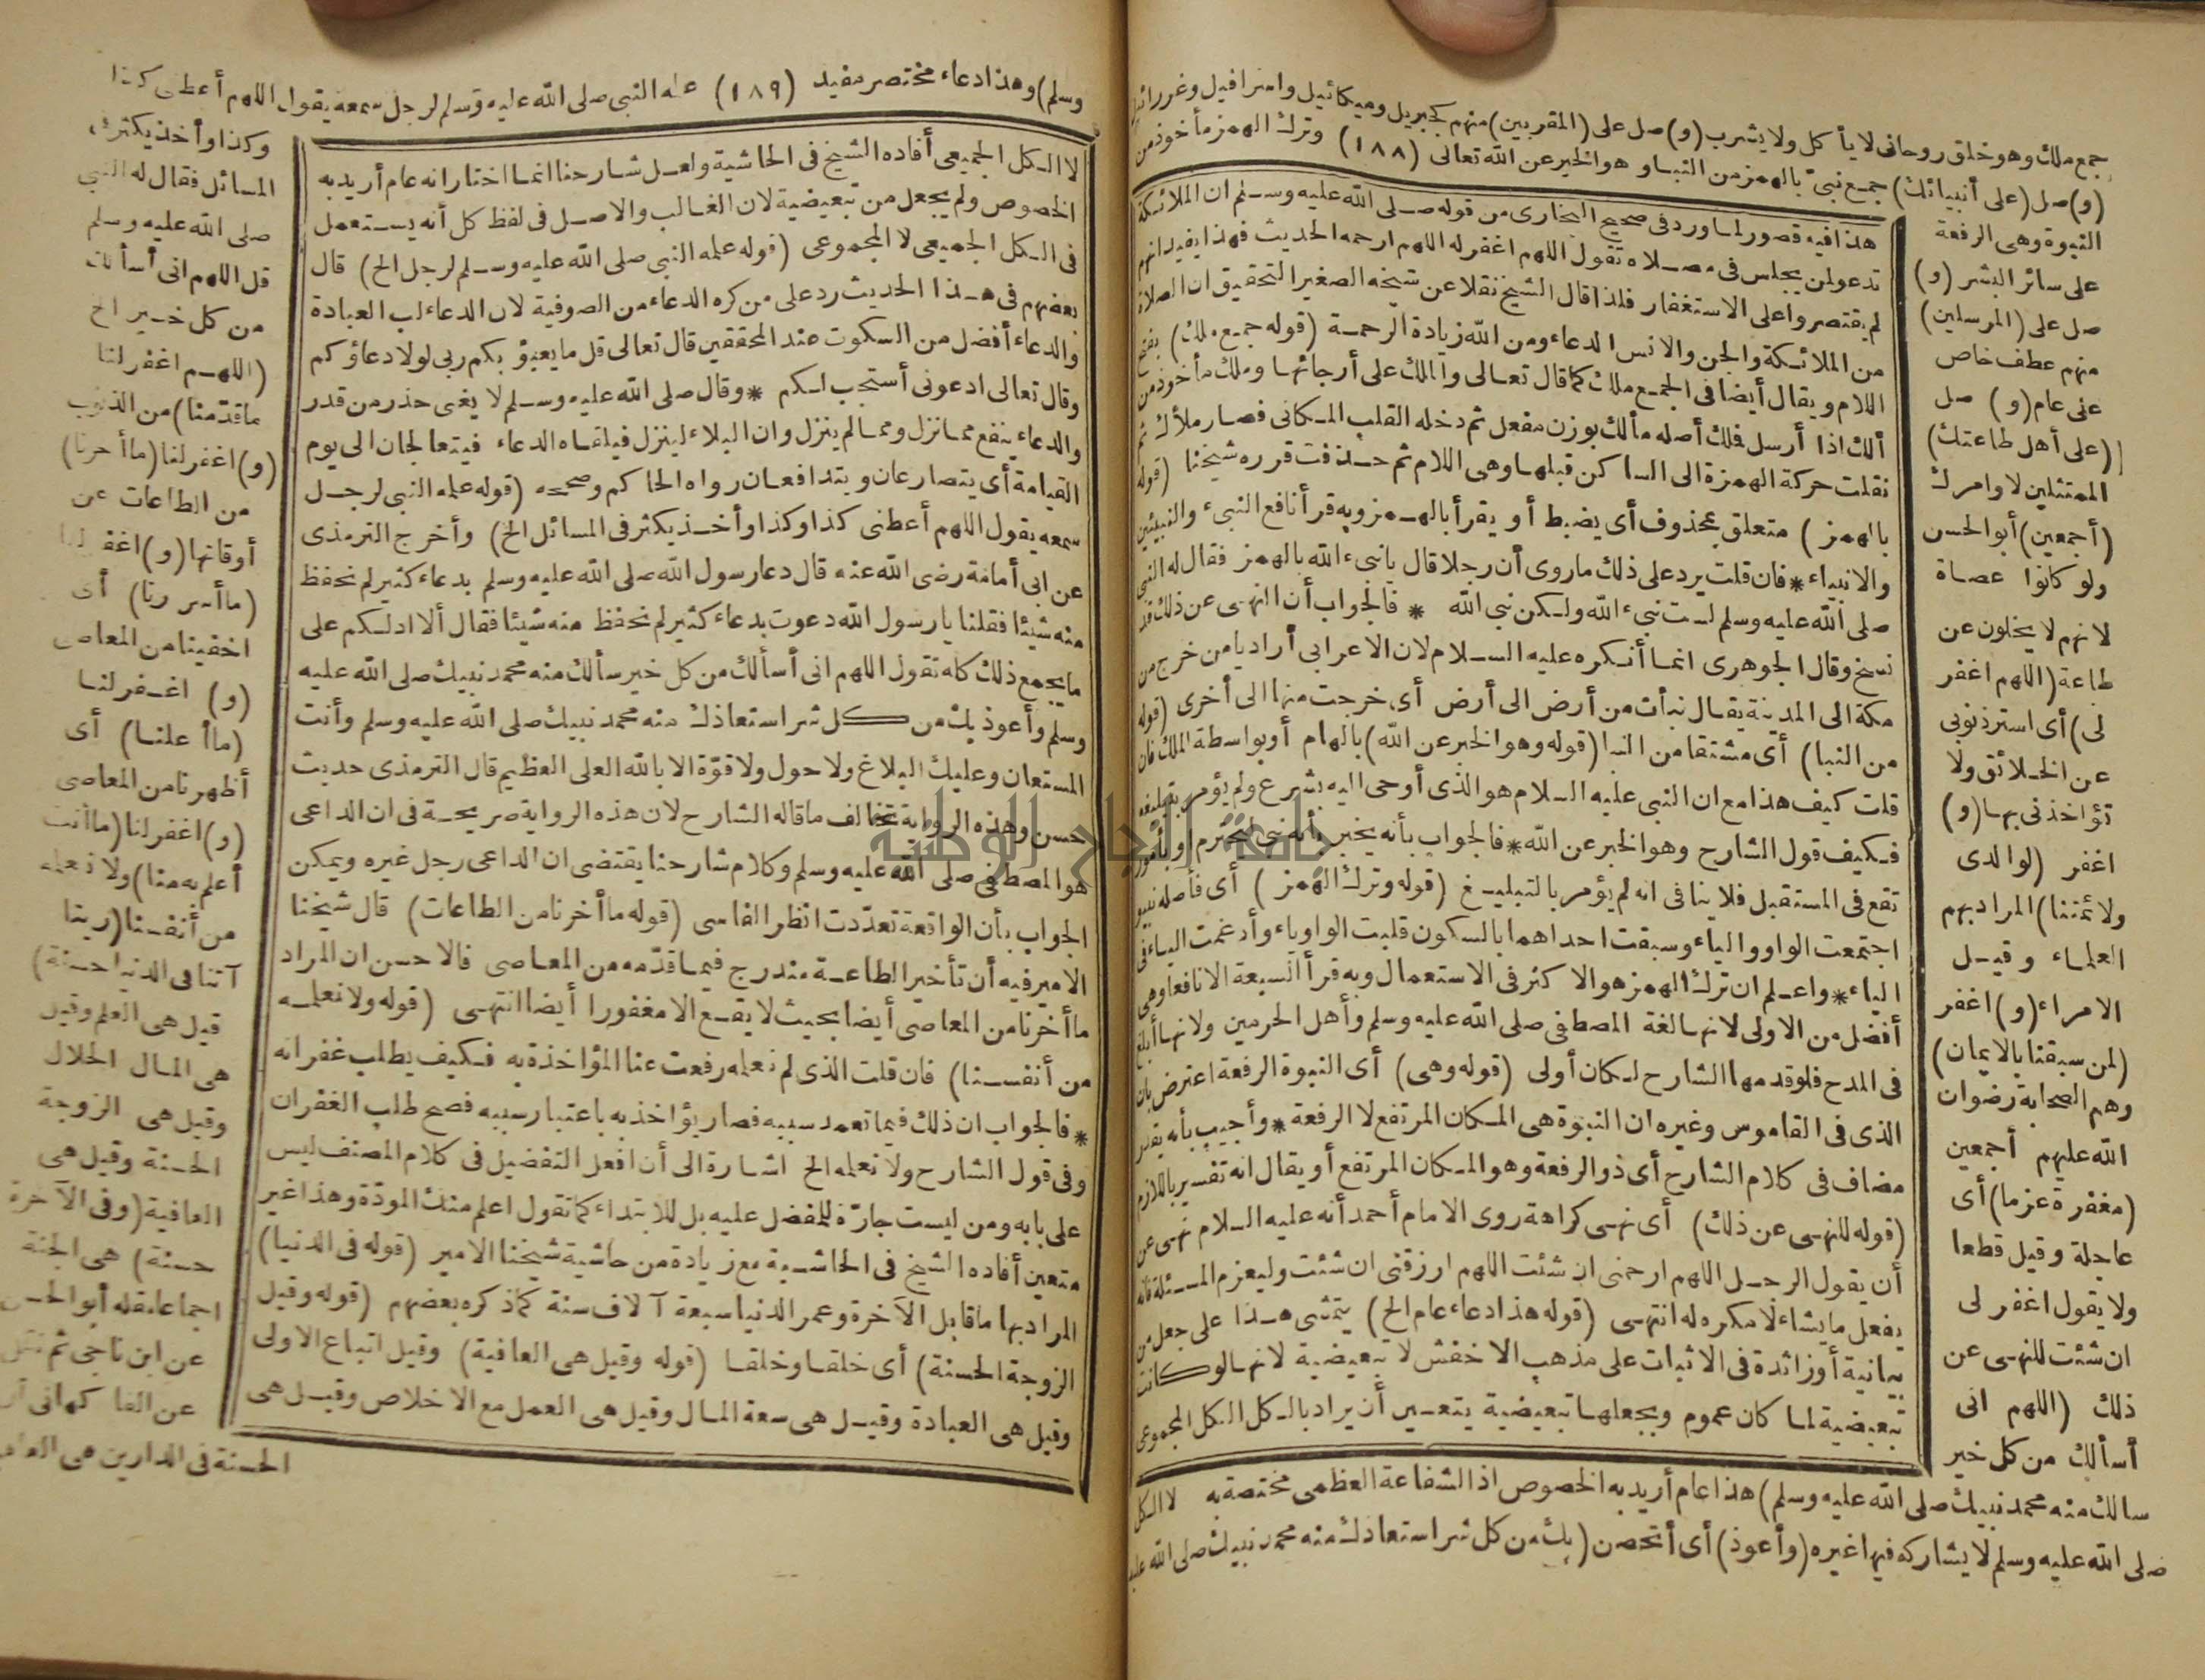 جمع ملك وهو خلق روحانى لا يأكل ولا يشرب (و) صل على (المقربين) منهم كجبريل وميكائيل واسرافيل وعزرائيل
(و) صل (على أنبيائك) جمع نبيّ بالهمز من النبا وهو الخبر عن الله تعالى (١٨٨) وترك الهمز مأخوذ من
النبوة وهى الرفعة
على سائر البشر (و)
صل على (المرسلين)
منهم عطف خاص
على عام (و) صل
(على أهل طاعتك)
الممتثلين لاوامرك
(أجمعين) أبو الحسن
ولو كانوا عصاة
لانهم لا يخلون عن
طاعة (اللهم اغفر
لى) أى استر ذنوبى
عن الخلائق ولا
تؤاخذنى بها (و)
اغفر (لوالدى
ولائمتنا) المراد بهم
العلماء وقيل
الامراء (و) اغفر
(لمن سبقنا بالايمان)
وهم الصحابة رضوان
الله عليهم أجمعين
(مغفرة عزما) أى
عاجلة وقيل قطعا
ولا يقول اغفر لى
ان شئت للنهى عن
ذلك (اللهم انى
أسألك من كل خير
سالك منه محمد نبيك صلى الله عليه وسلم) هذا عام أريد به الخصوص اذ الشفاعة العظمى مختصة به
صلى الله عليه وسلم لا يشاركه فيها غيره (وأعوذ) أى أتحصن (بك من كل شر استعاذك منه محمد نبيك صلى الله عليه
هذا فيه قصور لما ورد فى صحيح البخارى من قوله صلى الله عليه وسلم ان الملائكة
تدعو لمن يجلس فى مصلاه تقول اللهم اغفر له اللهم ارحمه الحديث فهذا يفيد انهم
لم يقتصروا على الاستغفار فلذا قال الشيخ نقلا عن شيخه الصغير التحقيق ان الصلاة
من الملائكة والجن والانس الدعاء ومن الله زيادة الرحمة (قوله جمع ملك) بفتح
اللام ويقال أيضا فى الجمع ملاك كما قال تعالى والملك على أرجائها وملك مأخوذ من
ألك اذا أرسل فملك أصله مألك بوزن مفعل ثم دخله القلب المكانى فصار ملأك ثم
نقلت حركة الهمزة الى الساكن قبلها وهى اللام ثم حذفت قرره شيخنا (قوله
بالهمز) متعلق بمحذوف أى يضبط أو يقرأ بالهمز وبه قرأ نافع النبىء والنبيئين
والانبياء * فان قلت يرد على ذلك ما روى أن رجلا قال يا نبىء الله بالهمز فقال له النبى
صلى الله عليه وسلم لست نبىء الله ولكن نبى الله * فالجواب أن النهى عن ذلك قد
نسخ وقال الجوهرى انما أنكره عليه السلام لان الاعرابى أراد يا من خرج من
مكة الى المدينة يقال نبأت من أرض الى أرض أى خرجت منها الى أخرى (قوله
من النبا) أى مشتقا من النبا (قوله وهو الخبر عن الله) بالهام أو بواسطة الملك فان
قلت كيف هذا مع ان النبى عليه السلام هو الذى أوحى اليه بشرع ولم يؤمر بتبليغه
فكيف قول الشارح وهو الخبر عن الله * فالجواب بأنه يخبر بأنه نبى ليحترم أو بأمور
تقع فى المستقبل فلا ينافى انه لم يؤمر بالتبليغ (قوله وترك الهمز) أى فأصله نبيو
اجتمعت الواو والياء وسبقت احداهما بالسكون قلبت الواو ياء وأدغمت الياء فى
الياء * واعلم ان ترك الهمز هو الاكثر فى الاستعمال وبه قرأ السبعة الا نافعا وهى
أفضل من الاولى لانها لغة المصطفى صلى الله عليه وسلم وأهل الحرمين ولانها أبلغ
فى المدح فلو قدمها الشارح لكان أولى (قوله وهى) أى النبوة الرفعة اعترض بان
الذى فى القاموس وغيره ان النبوة هى المكان المرتفع لا الرفعة * وأجيب بأنه يقدر
مضاف فى كلام الشارح أى ذو الرفعة وهو المكان المرتفع أو يقال انه تفسير باللازم
(قوله للنهى عن ذلك) أى نهى كراهة روى الامام أحمد أنه عليه السلام نهى عن
أن يقول الرجل اللهم ارحمنى ان شئت اللهم ارزقنى ان شئت وليعزم المسئلة فانه
يفعل ما يشاء لا مكره له انتهى (قوله هذا دعاء عام الخ) يتمشى هذا على جعل من
بيانية أو زائدة فى الاثبات على مذهب الاخفش لا تبعيضية لانها لو كانت
تبعيضية لما كان عموم وبجعلها تبعيضية يتعين أن يراد بالكل الكل المجموعى
لا الكل
وسلم) وهذا دعاء مختصر مفيد (١٨٩) علمه النبى صلى الله عليه وسلم لرجل سمعه يقول اللهم أعطنى كذا
وكذا وأخذ يكثر فى
المسائل فقال له النبى
صلى الله عليه وسلم
قل اللهم انى أسألك
من كل خير الخ
(اللهم اغفر لنا
ما قدّمنا) من الذنوب
(و) اغفر لنا (ما أخرنا)
من الطاعات عن
أوقاتها (و) اغفر لنا
(ما أسررنا) أى
اخفينا من المعاصى
(و) اغفر لنا
(ما أعلنا) أى
أظهرنا من المعاصى
(و) اغفر لنا (ما أنت
أعلم به منا) ولا نعلمه
من أنفسنا (ربنا
آتنا فى الدنيا حسنة)
قيل هى العلم وقيل
هى المال الحلال
وقيل هى الزوجة
الحسنة وقيل هى
العافية (وفى الآخرة
حسنة) هى الجنة
اجماعا نقله أبو الحسن
عن ابن ناجى ثم نقل
عن الفاكهانى أن
الحسنة فى الدارين هى العافية
لا الكل الجميعى أفاده الشيخ فى الحاشية ولعل شارحنا انما اختار انه عام أريد به
الخصوص ولم يجعل من تبعيضية لان الغالب والاصل فى لفظ كل أنه يستعمل
فى الكل الجميعى لا المجموعى (قوله علمه النبى صلى الله عليه وسلم لرجل الخ) قال
بعضهم فى هذا الحديث رد على من كره الدعاء من الصوفية لان الدعاء لب العبادة
والدعاء أفضل من السكوت عند المحققين قال تعالى قل ما يعبؤ بكم ربى لولا دعاؤكم
وقال تعالى ادعونى أستجب لكم * وقال صلى الله عليه وسلم لا يغنى حذر من قدر
والدعاء ينفع مما نزل ومما لم ينزل وان البلاء لينزل فيلقاه الدعاء فيتعالجان الى يوم
القيامة أى يتصارعان ويتدافعان رواه الحاكم وصححه (قوله علمه النبى لرجل
سمعه يقول اللهم أعطنى كذا وكذا وأخذ يكثر فى المسائل الخ) وأخرج الترمذى
عن ابى أمامة رضى الله عنه قال دعا رسول الله صلى الله عليه وسلم بدعاء كثير لم نحفظ
منه شيئا فقلنا يا رسول الله دعوت بدعاء كثير لم نحفظ منه شيئا فقال ألا ادلكم على
ما يجمع ذلك كله تقول اللهم انى أسألك من كل خير سألك منه محمد نبيك صلى الله عليه
وسلم وأعوذ بك من كل شر استعاذك منه محمد نبيك صلى الله عليه وسلم وأنت
المستعان وعليك البلاغ ولا حول ولا قوّة الا بالله العلى العظيم قال الترمذى حديث
حسن وهذه الرواية تخالف ما قاله الشارح لان هذه الرواية صريحة فى ان الداعى
هو المصطفى صلى الله عليه وسلم وكلام شارحنا يقتضى ان الداعى رجل غيره ويمكن
الجواب بأن الواقعة تعدّدت انظر الفاسى (قوله ما أخرنا من الطاعات) قال شيخنا
الامير فيه أن تأخير الطاعة مندرج فيما قدّمه من المعاصى فالاحسن ان المراد
ما أخرنا من المعاصى أيضا بحيث لا يقع الا مغفورا أيضا انتهى (قوله ولا نعلمه
من أنفسنا) فان قلت الذى لم نعلمه رفعت عنا المؤاخذة به فكيف يطلب غفرانه
* فالجواب ان ذلك فيما تعمد سببه فصار يؤاخذ به باعتبار سببه فصح طلب الغفران
وفى قول الشارح ولا نعلمه الخ اشارة الى أن افعل التفضيل فى كلام المصنف ليس
على بابه ومن ليست جارّة للمفضل عليه بل للابتداء كما تقول اعلم منك المودّة وهذا غير
متعين أفاده الشيخ فى الحاشية مع زيادة من حاشية شيخنا الامير (قوله فى الدنيا)
المراد بها ما قابل الآخرة وعمر الدنيا سبعة آلاف سنة كما ذكره بعضهم (قوله وقيل
الزوجة الحسنة) أى خلقا وخلقا (قوله وقيل هى العافية) وقيل اتباع الاولى
وقيل هى العبادة وقيل هى سعة المال وقيل هى العمل مع الاخلاص وقيل هى
جامعة النجاح الوطنية